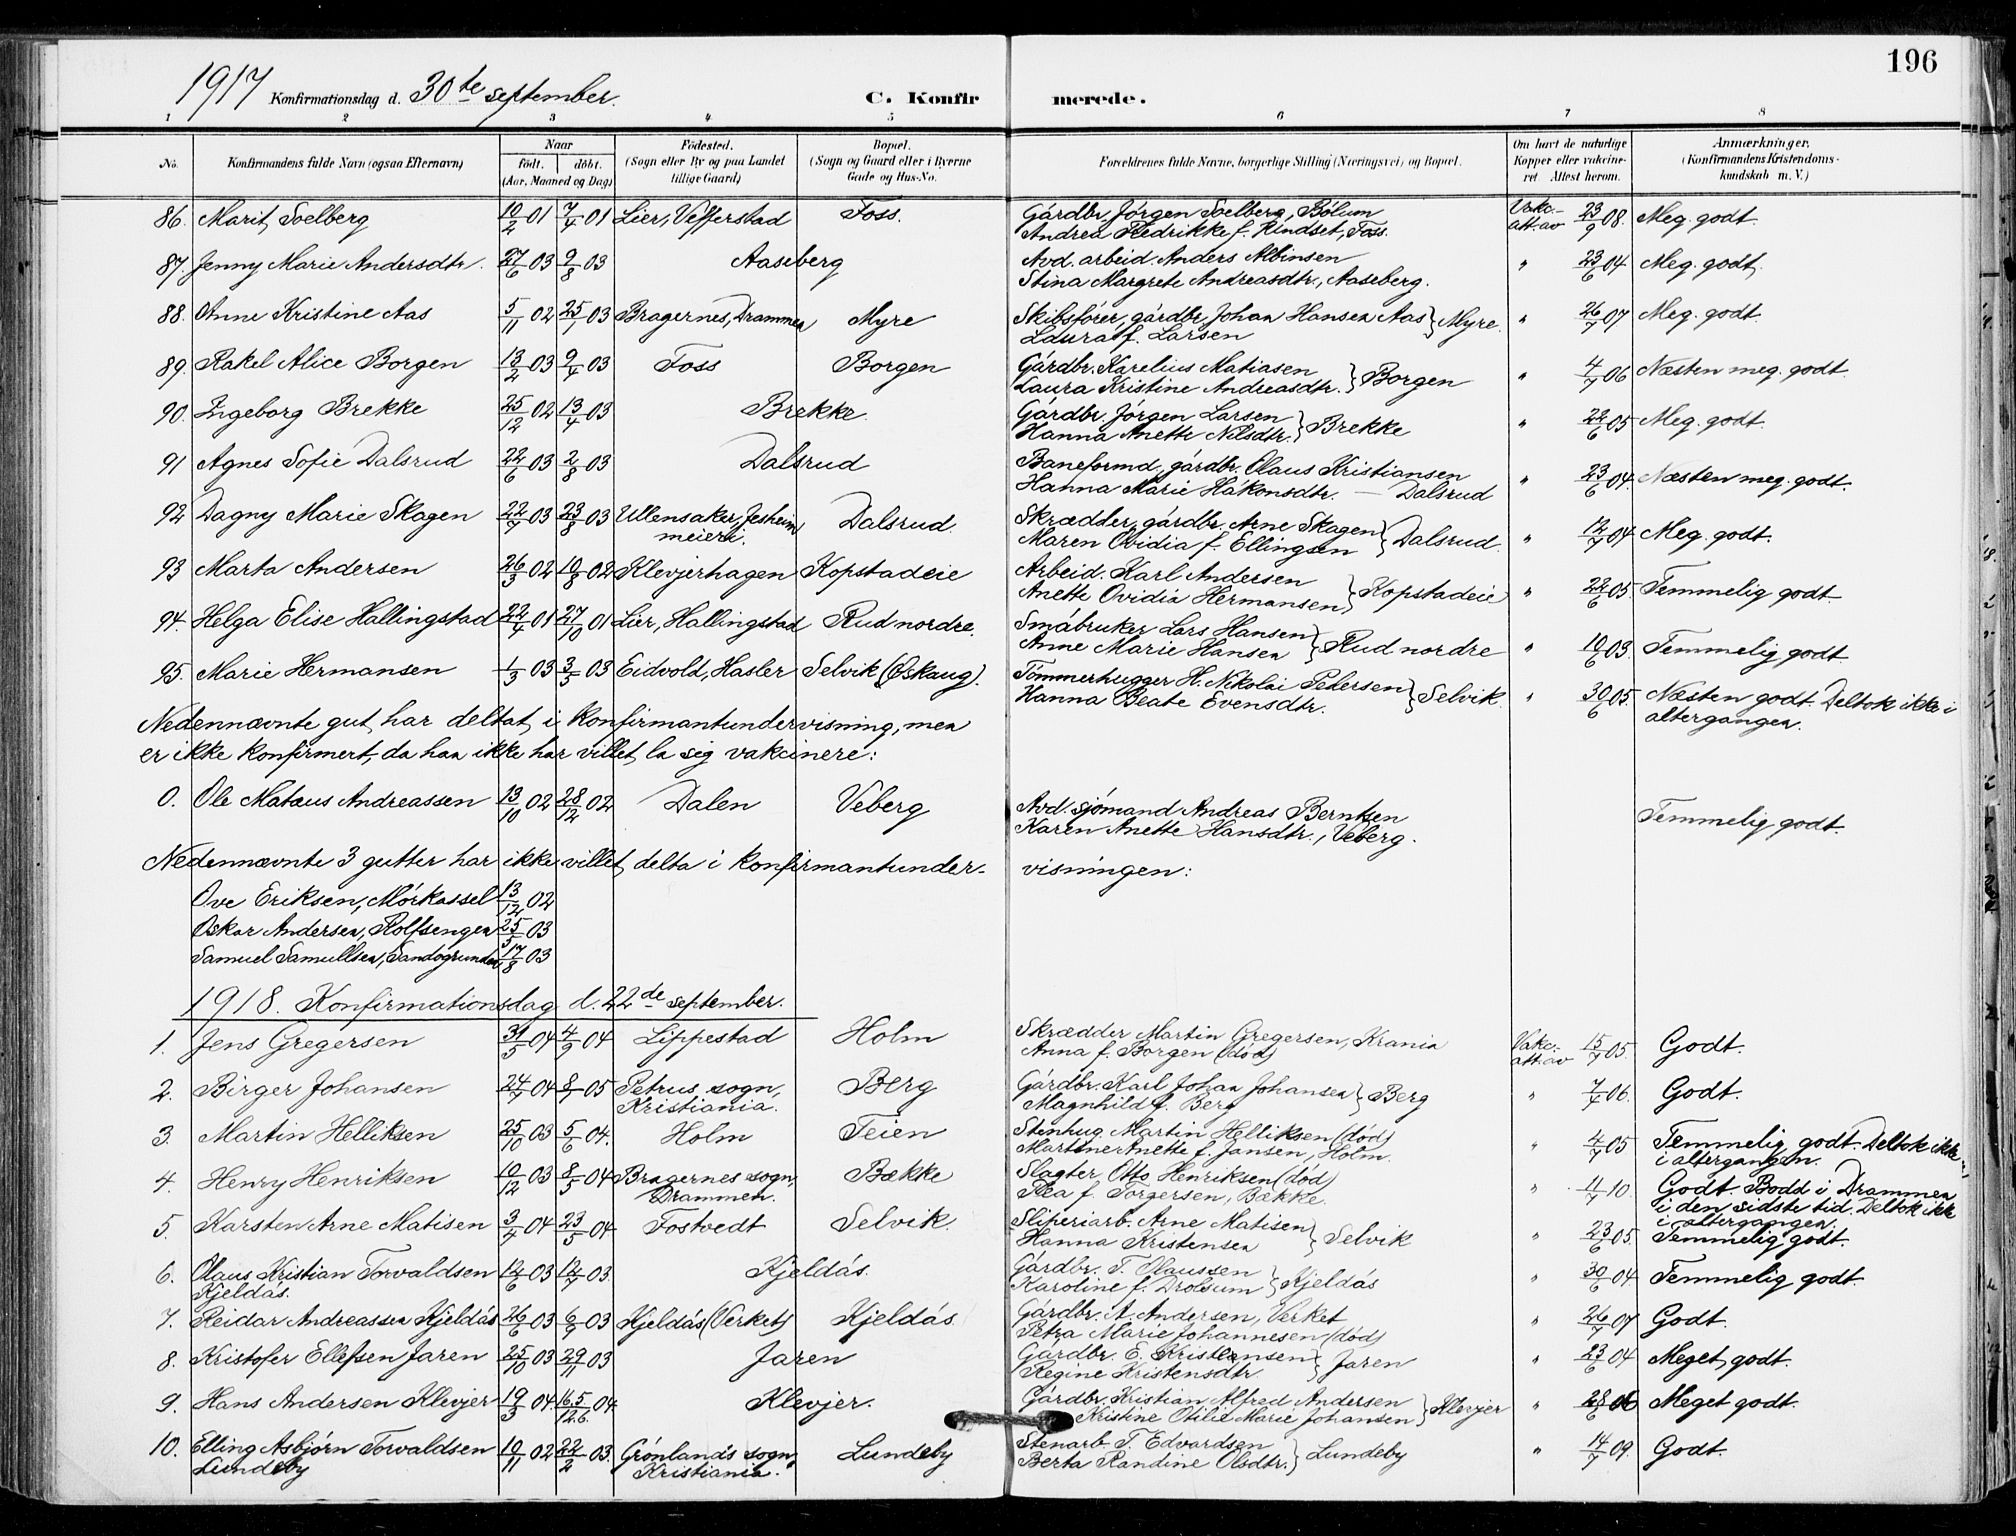 196
1917 Konfirmationsdag d. 30te september. C. Konfirmerede.
1 2 3 4 5 6 7 8
No. Konfirmandens fulde Navn (ogsaa Efternavn) Naar födt. döbt. (Aar, Maaned og Dag) Födested. (Sogn eller By og paa Landet tillige Gaard) Bopæl. (Sogn og Gaard eller i Byerne Gade og Hus-No. Forældrenes fulde Navne, borgerlige Stilling (Næringsvei) og Bopæl. Om havt de naturlige Kopper eller vakcineret Attest herom. Anmærkninger, (Konfirmandens Kristendomskundskab m. V.)
86. Marit Soelberg 10/2 01 7/4 01 Lier, Vefferstad Foss. Gårdbr. Jörgen Soelberg, Bölum Vakc.- att. av 23/9 08. Meg. godt.
Andrea Fredrikke f. Rindset, Foss.
87. Jenny Marie Andersdtr. 27/6 03 9/8 03 Aaseberg Avd. arbeid. Anders Albinsen " 23/6 04 Meg. godt.
Stina Margrete Andreasdtr., Aaseberg.
88. Anne Kristine Aas 5/11 02 25/1 03 Bragernes, Drammen Myre Skibsförer, gårdbr. Johan Hansen Aas } Myre. " 26/7 07 Meg. godt.
Laura f. Larsen
89. Rakel Alice Borgen 13/2 03 9/4 03 Foss Borgen Gårdbr. Karelius Matiasen } Borgen " 4/7 06 Næsten meg. godt.
Laura Kristine Andreasdtr.
90. Ingeborg Brekke 25/12 02 13/4 03 Brekke. Gårdbr. Jörgen Larsen } Brekke " 22/6 05 Meg. godt.
Hanna Anette Nilsdtr.
91 Agnes Sofie Dalsrud 22/6 03 2/8 03 Dalsrud Baneformd., gårdbr. Olaus Kristiansen " 23/6 04. Næsten meg. godt.
Hanna Marie Håkonsdtr. — Dalsrud
92 Dagny Marie Skagen 22/7 03 23/8 03 Ullensaker, Jesheim meieri. Dalsrud. Skrædder, gårdbr. Arne Skagen } Dalsrud. " 12/7 04 Meg. godt.
Maren Ovidia f. Ellingsen
93 Marta Andersen 26/3 02 10/8 02 Klevjerhagen Kopstadeie Arbeid. Karl Andersen } Kopstadeie " 22/6 05. Temmelig godt.
Anette Ovidia Hermansen
94. Helga Elise Hallingstad 22/4 01 27/10 01 Lier, Hallingstad Rud nordre. Småbruker Lars Hansen } Rud nordre " 10/6 03. Temmelig godt
Anne Marie Hansen
95. Marie Hermansen 1/3 03 3/5 03 Eidvold, Hasler Selvik (Öskaug). Tömmerhugger H. Nikolai Petersen } Selvik. " 30/6 05. Næsten godt. Deltok ikke i
Hanna Beate Evensdtr. altergangen.
Nedennævnte gut har deltat i konfirmantundervisning, men
er ikke konfirmert, da han ikke har villet la sig vakcinere:
0. Ole Mataus Andreassen 13/10 02 28/12 02 Dalen Veberg Avd. sjömand Andreas Berntsen Temmelig godt.
Karen Anette Hansdtr., Veberg.
Nedennævnte 3 gutter har ikke villet delta i konfirmantundervisningen:
Ove Eriksen, Mörkassel 13/12 02
Oskar Andersen, Rolfsengen 25/5 03
Samuel Samullsen, Sandogrunden 17/8 03
1918. Konfirmationsdag d. 22de september.
1. Jens Gregersen 31/5 04 4/9 04 Lippestad Holm Skrædder Martin Gregersen, Krania Vakc.- att. av 15/7 05. Godt.
Anna f. Borgen (död)
2. Birger Johansen 24/7 04 8/1 05 Petrus sogn, Kristiania. Berg Gårdbr. Karl Johan Johansen } Berg " 7/7 06. Godt.
Magnhild f. Berg
3. Martin Helliksen 25/10 03 5/6 04. Holm Teien Stenhug. Martin Helliksen (död) " 4/7 05 Temmelig godt. Deltok ikke
Martine Anette f. Jansen, Holm. i altergangen.
4. Henry Henriksen 10/12 03 8/5 04 Bragernes sogn, Drammen. Bække Slagter Otto Henriksen (död) " 11/7 10. Godt. Bodd i Drammen
Thea f. Torgersen, Bække. i den sidste tid. Deltok ikke
i altergangen.
5. Karsten Arne Matisen 3/4 04 23/5 04 Fostvedt Selvik. Sliperiarb. Arne Matisen } Selvik " 23/6 05. Temmelig godt.
Hanna Kristensen
6. Olaus Kristian Torvaldsen 12/6 03 12/7 03. Kjeldås. Gårdbr. T. Klaussen } Kjeldås " 30/6 04 Temmelig godt.
Kjeldås. Karoline f. Drolsum
7. Reidar Andreassen Kjeldås 26/6 03 6/9 03 Kjeldås (Verket) Kjeldås. Gårdbr. A. Andersen, Verket " 26/7 07 Godt.
Petra Marie Johannesen (död)
8. Kristofer Ellefsen Jaren 25/10 03 29/11 03 Jaren Gårdbr. E. Kristensen } Jaren " 23/6 04 Meget godt.
Regine Kristensdtr.
9. Hans Andersen Klevjer 19/3 04 16.5/12.6. 04 Klevjer. Gårdbr. Kristian Alfred Andersen } Klevjer " 28/6 06 Meget godt.
Kristine Otilie Marie Johansen
10. Elling Asbjörn Torvaldsen 10/11 02 22/2 03. Grönlands sogn, Kristiania. Lundeby Stenarb. T. Edvardsen } Lundeby " 14/7 09. Godt.
Lundeby Berta Randine Olsdtr.